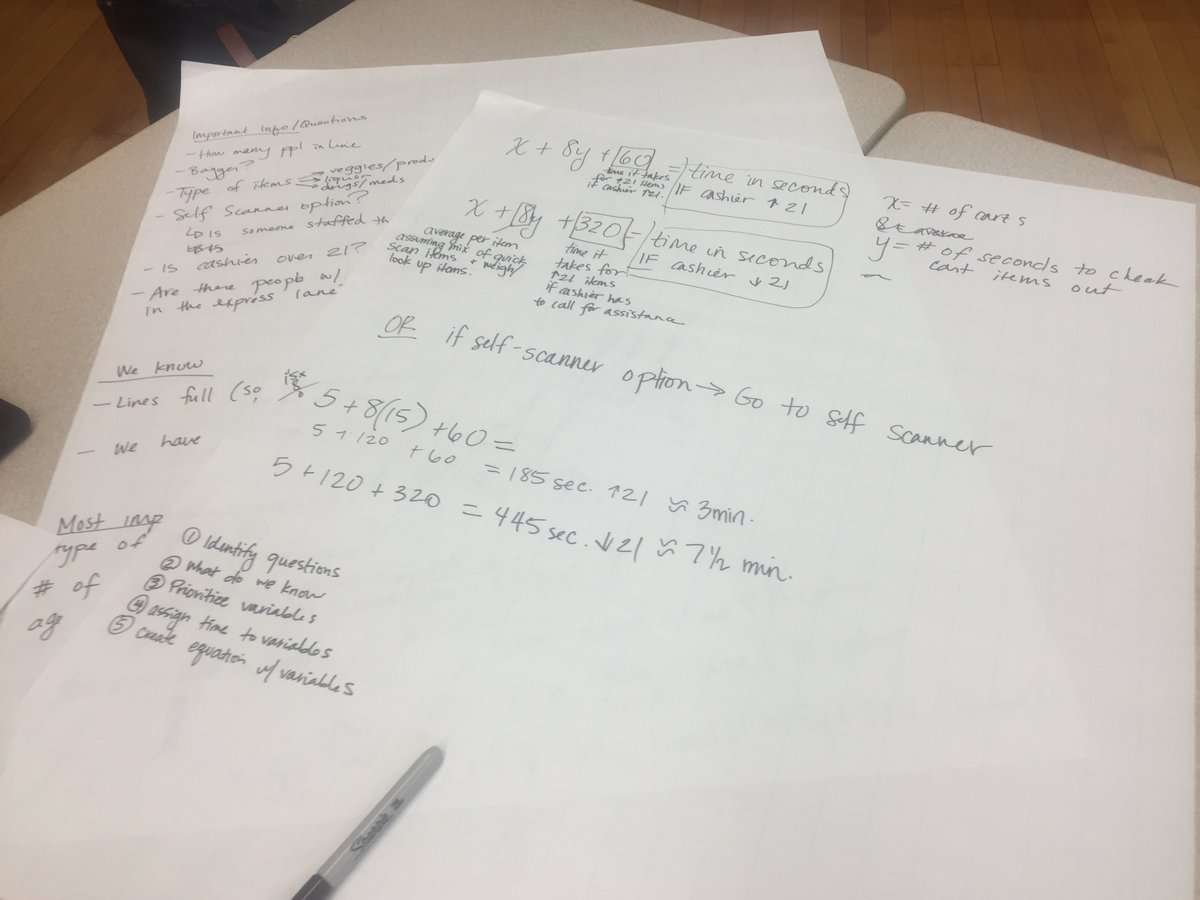 Important Info/Questions
- How many ppl in line
- Bagger?
- Type of items → veggies/produ
→ liquor
→ drugs/meds
- Self Scanner option?
↳ Is someone staffed th
- Is cashier over 21?
- Are there people w/
in the express lane
We know
- Lines full (so,
- We have
Most imp
type of
# of
ag
x + 8y + 60 = time in seconds
IF cashier ↑ 21
time it takes
for ↑21 items
if cashier ↑21.
x + 8y + 320 = time in seconds
IF cashier ↓ 21
average per item
assuming mix of quick
scan items + weigh/
look up items.
time it
takes for
↑21 items
if cashier has
to call for assistance
x = # of carts
y = # of seconds to check
cart items out
OR if self-scanner option → Go to self scanner
5 + 8(15) + 60 =
5 + 120 + 60 = 185 sec. ↑21 ≈ 3 min.
5 + 120 + 320 = 445 sec. ↓21 ≈ 7½ min.
① Identify questions
② What do we know
③ Prioritize variables
④ assign time to variables
⑤ create equation w/ variables
Sharpie